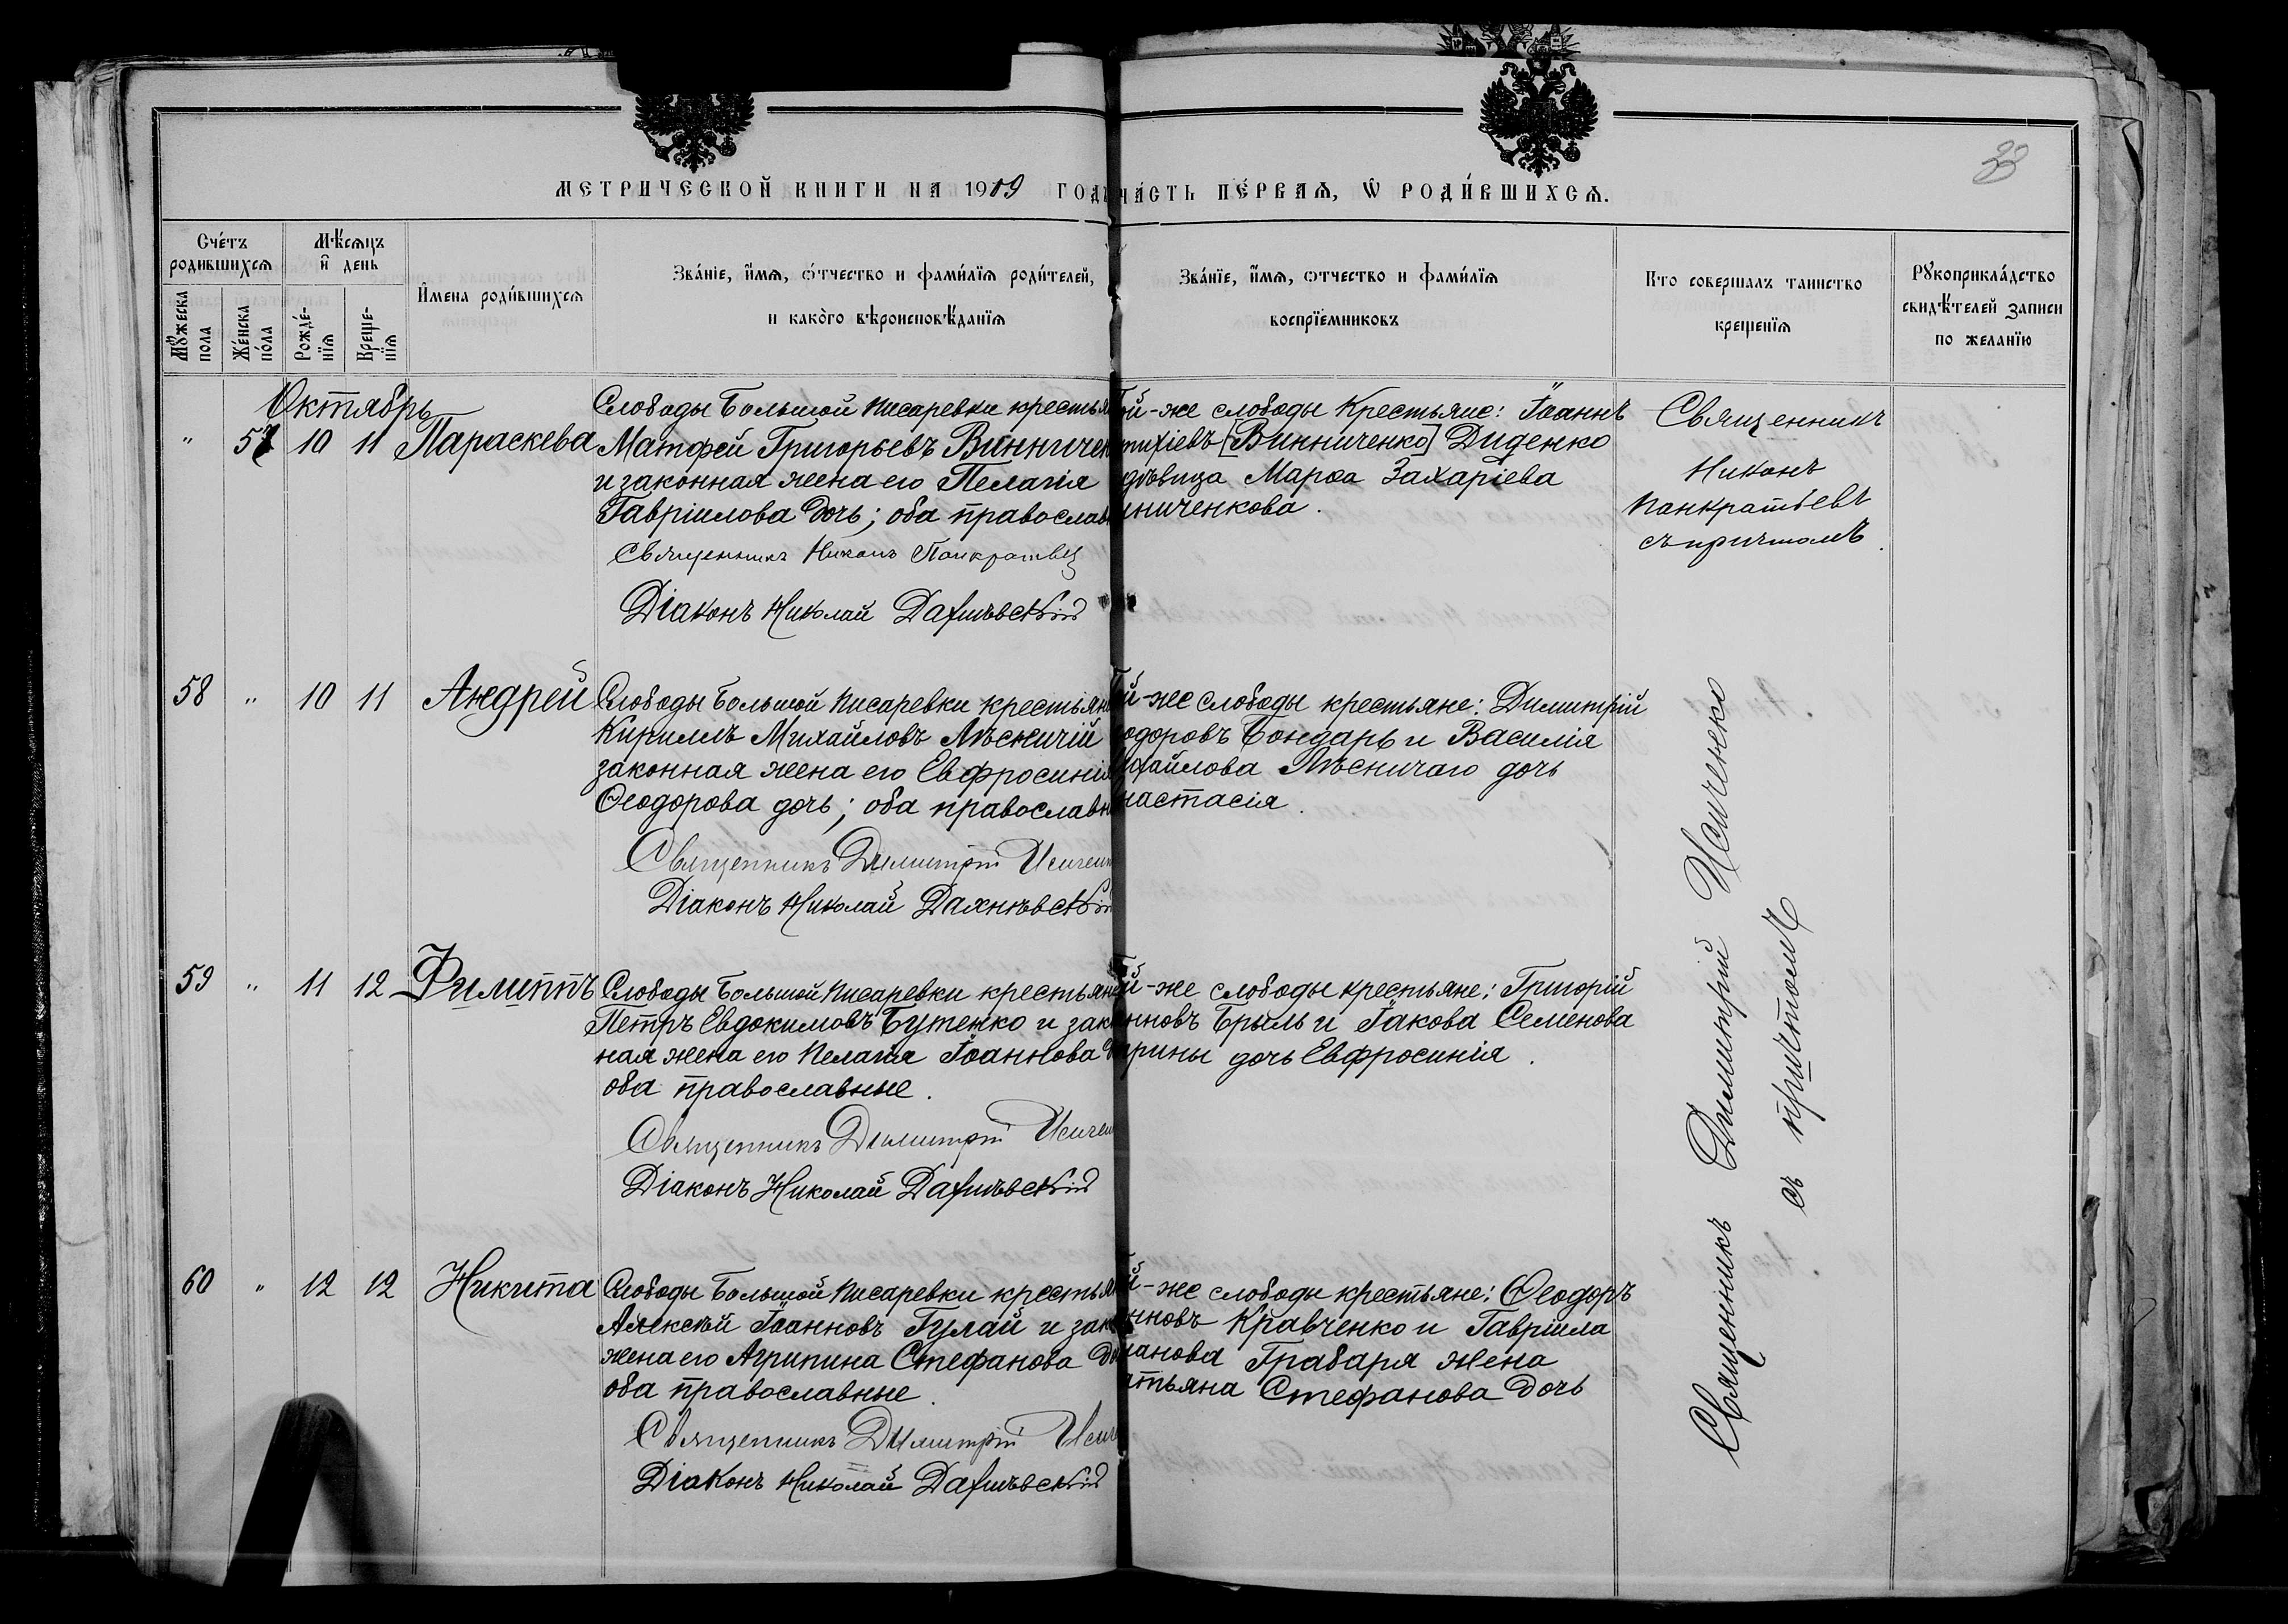 МЕТРИЧЕСКОЙ КНИГИ НА 1909 ГОДЪ
ЧА́СТЬ ПЕ́РВАѦ, Ѡ҆ РОДИ́ВШИХСѦ.
33
Сче́тъ родившихсѧ
Мꙋжеска пола
Же́нска по́ла
Мѣ́сѧцъ и҆ день
Рожде́-нїѧ
Креще-нїѧ
И҆мена роди́вшихсѧ
Зва́нїе, и҆́мѧ, ѻ҆́тчество и фами́лїѧ роди́телей,
и како̀го вѣроисповѣ́данїѧ
Зва́нїе, и҆́мѧ, ѡтчество и фами́лїѧ
воспрїе́мниковъ
Кто совершалъ таинство
крещенїѧ
Рꙋкоприкла́дство
свидѣ́телей записи
по желанїю
Октябрь
" 57 10 11 Параскева
Слободы Большой Писаревки крестья
Матѳей Григорьевъ Винничен
и законная жена его Пелагія
Гавріилова дочь; оба православ
Священникъ Никонъ Панкратьевъ
Діаконъ Николай Дахнѣвскій
ой-же слободы Крестьяне: Іоаннъ
тихіевъ [Винниченко] Диденко
дѣвица Марѳа Захаріева
ниченкова.
Священникъ
Никонъ
Панкратьевъ
съ причтомъ.
58 " 10 11 Андрей
Слободы Большой Писаревки крестьян
Кириллъ Михайловъ Лѣсничій
законная жена его Евфросинія
Ѳеодорова дочь; оба православн
Священникъ Димитрій Исичен
Діаконъ Николай Дахнѣвскій
й-же слободы крестьяне: Димитрій
одоровъ Бондарь и Василія
хайлова Лѣсничаго дочь
настасія.
59 " 11 12 Филиппъ
Слободы Большой Писаревки крестьяне
Петръ Евдокимовъ Бутенко и зак
ная жена его Пелагія Іоаннова
оба православные.
Священникъ Димитрій Исичен
Діаконъ Николай Дахнѣвскій
й-же слободы крестьяне: Григорій
нновъ Брыль и Іакова Семенова
рины дочь Евфросинія.
60 " 12 12 Никита
Слободы Большой Писаревки крестья
Алексѣй Іоанновъ Гулай и зак
жена его Агрипина Стефанова до
оба православные.
Священникъ Димитрій Исич
Діаконъ Николай Дахнѣвскій
й-же слободы крестьяне: Ѳеодоръ
нновъ Кравченко и Гавріила
анова Грабаря жена
атьяна Стефанова дочь
Священникъ Димитрій Исиченко
съ причтомъ